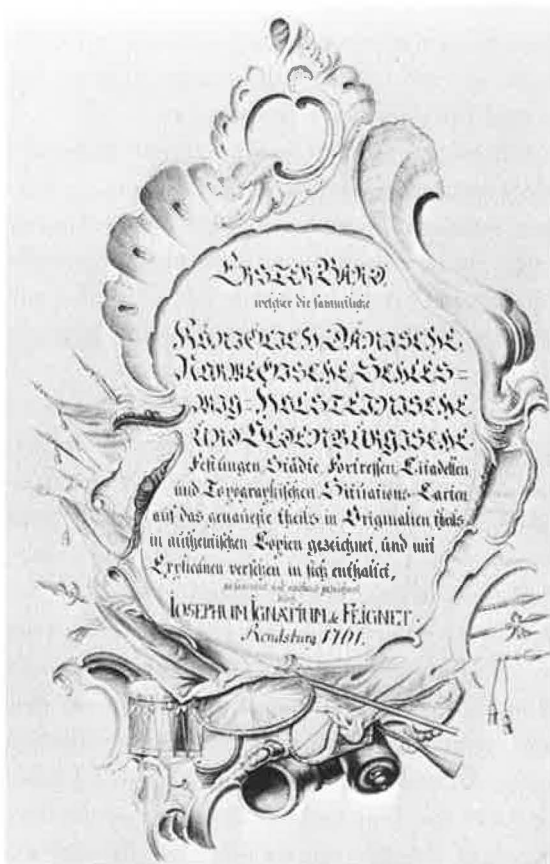 ERSTER BAND,
welcher die sammtliche
KÖNIGLICH DÄNISCHE
NORWEGISCHE, SCHLES=
WIG=HOLSTEINISCHE
UND OLDENBURGISCHE
Festungen Städte, Fortressen, Citadellen
und Topographischen Situations-Carten
auf das genaueste theils in Originalien theils
in authentischen Copien gezeichnet, und mit
Explicanen versehen in sich enthaltet,
IOSEPHUM IGNATIUM de FEIGNET.
Rendsburg 1761.